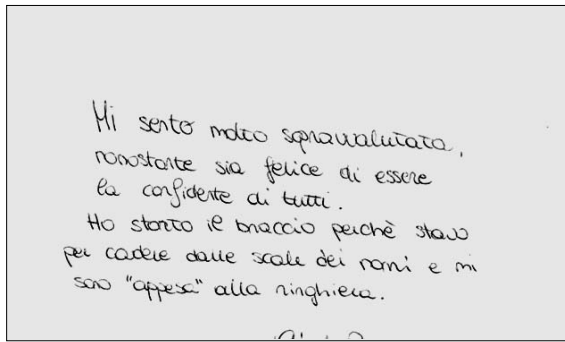 Mi sento molto sopravvalutata,
nonostante sia felice di essere
la confidente di tutti.
Ho storto il braccio perchè stavo
per cadere dalle scale dei nonni e mi
sono "appesa" alla ringhiera.